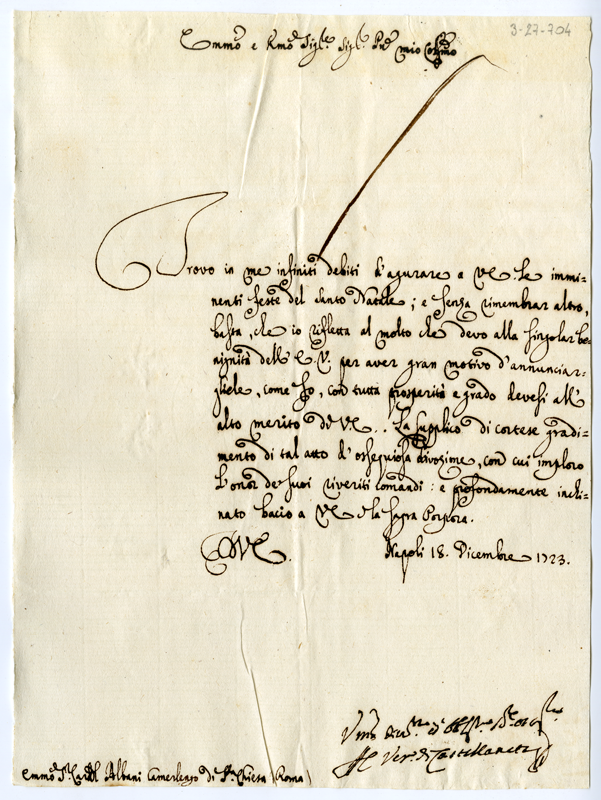 3-27-704
Emmo e Rmo Sigre Sigre Pne mio Colmo
Trovo in me infiniti debiti d'agurare a VE. le immi=
nenti feste del Santo Natale; e senza rimembrar altro,
basta, che io rifletta al molto che devo alla singolar be=
nignità dell' E. V. per aver gran motivo d'annunciar=
gliele, come fo, con tutta prosperità e grado devesi all'
alto merito di VE.. La supplico di cortese gradi=
mento di tal atto d'ossequiosa divozime, con cui imploro
l'onor de suoi riveriti comandi: e profondamente inchi=
nato bacio a VE la sagra Porpora.
DVE. Napoli 18. Dicembre 1723.
Vmo
Il Ves. di Castellaneta
Emmo Sr Cardl Albani Camerlengo di Sta Chiesa (Roma)